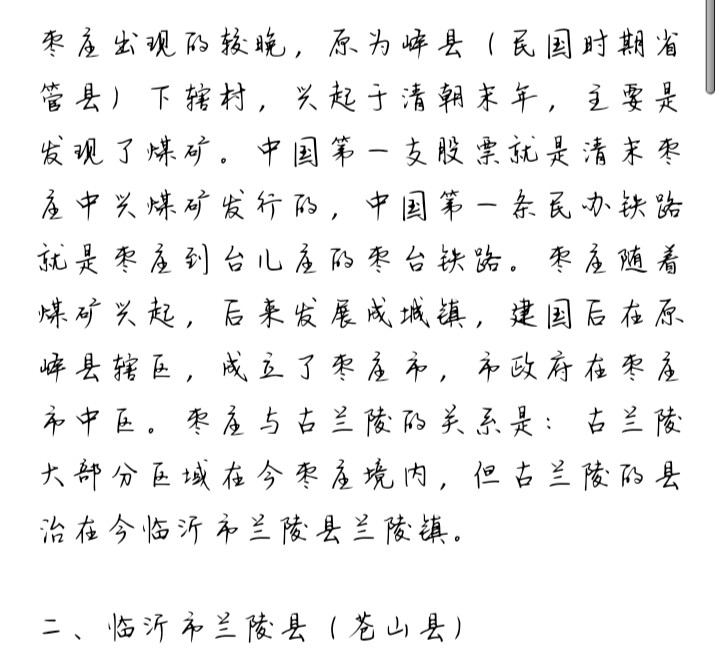 枣庄出现的较晚，原为峄县（民国时期省
管县）下辖村，兴起于清朝末年，主要是
发现了煤矿。中国第一支股票就是清末枣
庄中兴煤矿发行的，中国第一条民办铁路
就是枣庄到台儿庄的枣台铁路。枣庄随着
煤矿兴起，后来发展成城镇，建国后在原
峄县辖区，成立了枣庄市，市政府在枣庄
市中区。枣庄与古兰陵的关系是：古兰陵
大部分区域在今枣庄境内，但古兰陵的县
治在今临沂市兰陵县兰陵镇。
二、临沂市兰陵县（苍山县）